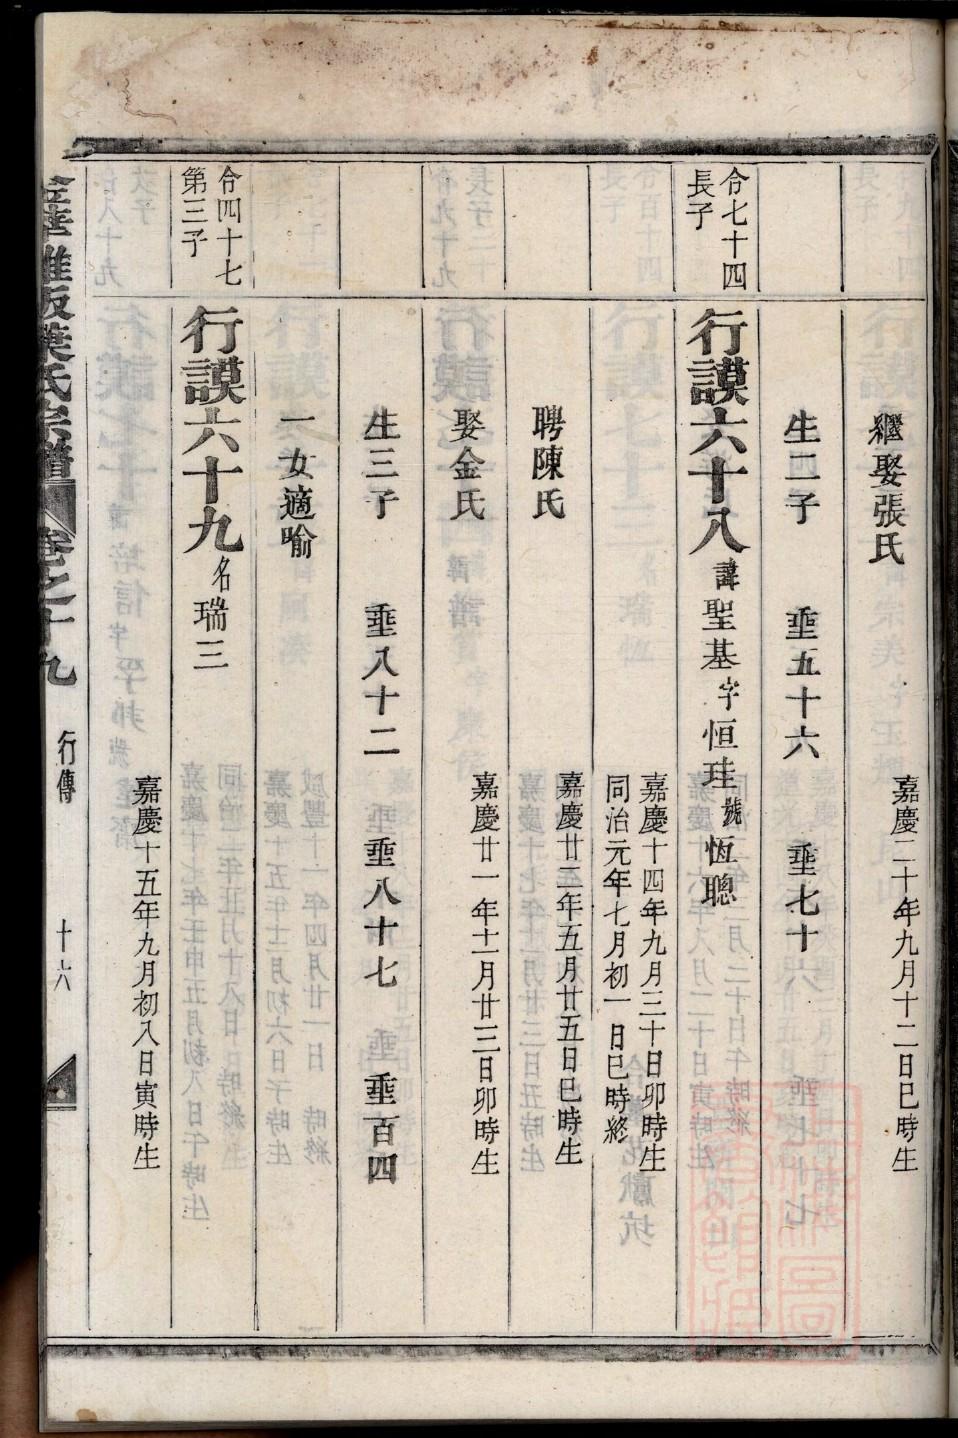 繼娶張氏
嘉慶二十年九月十二日巳時生
生二子 垂五十六 垂七十六
合七十四
長子
行謨六十八諱聖基字恒珪號恆聰
嘉慶十四年九月三十日卯時生
同治元年七月初一日巳時終
聘陳氏
嘉慶廿三年五月廿五日巳時生
娶金氏
嘉慶廿一年十一月廿三日卯時生
生三子 垂八十二 垂八十七 垂百四
一女適喻
合四十七
第三子
行謨六十九名瑞三
嘉慶十五年九月初八日寅時生
葉氏宗譜 卷之十九 行傳 十六